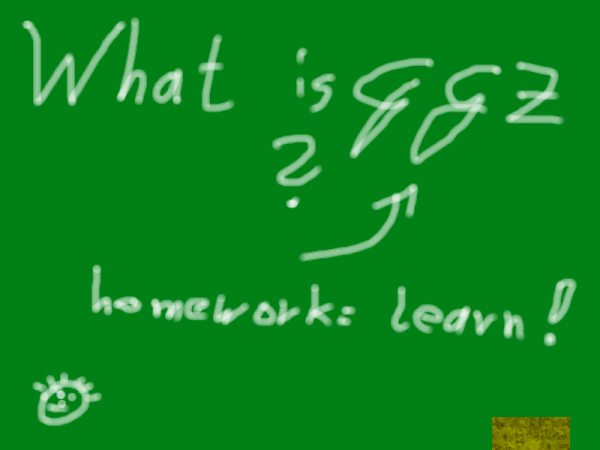 What is ggz
?
homework: learn!